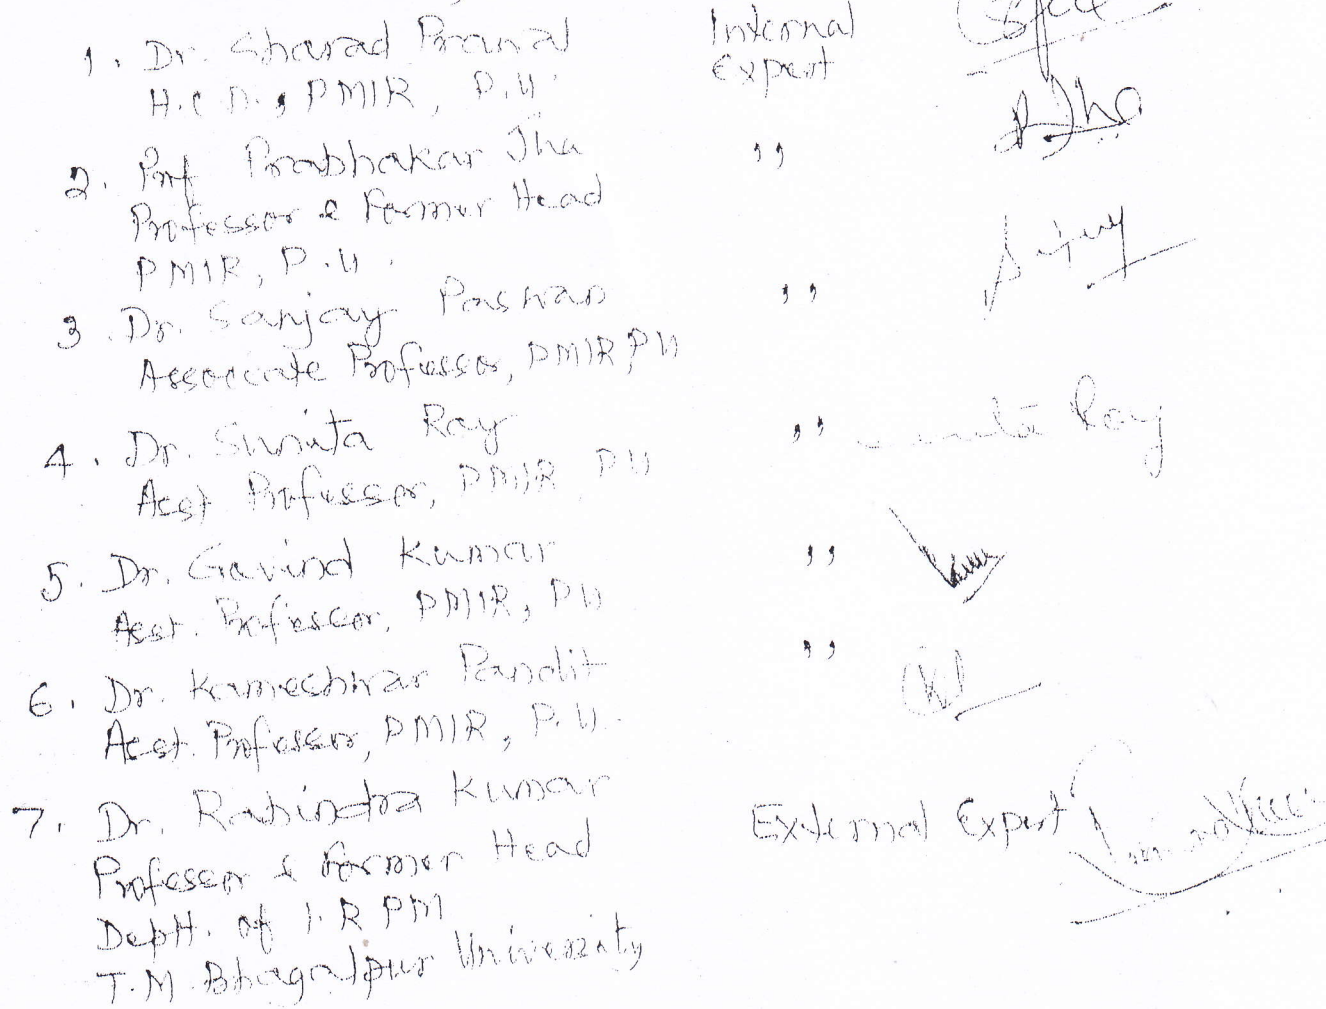 1. Dr. Sharad Pranal Internal
H.O.D., PMIR, P.U. Expert
2. Prof Prabhakar Jha ,,
Professor & Former Head
PMIR, P.U.
3. Dr. Sanjay Paswan ,,
Associate Professor, PMIR, PU
4. Dr. Sunita Ray ,, Ray
Asst Professor, PMIR PU
5. Dr. Govind Kumar ,,
Asst. Professor, PMIR, PU
6. Dr. Kameshwar Pandit ,,
Asst. Professor, PMIR, P.U.
7. Dr. Rabindra Kumar External Expert
Professor & Former Head
Deptt. of I.R PM
T.M. Bhagalpur University